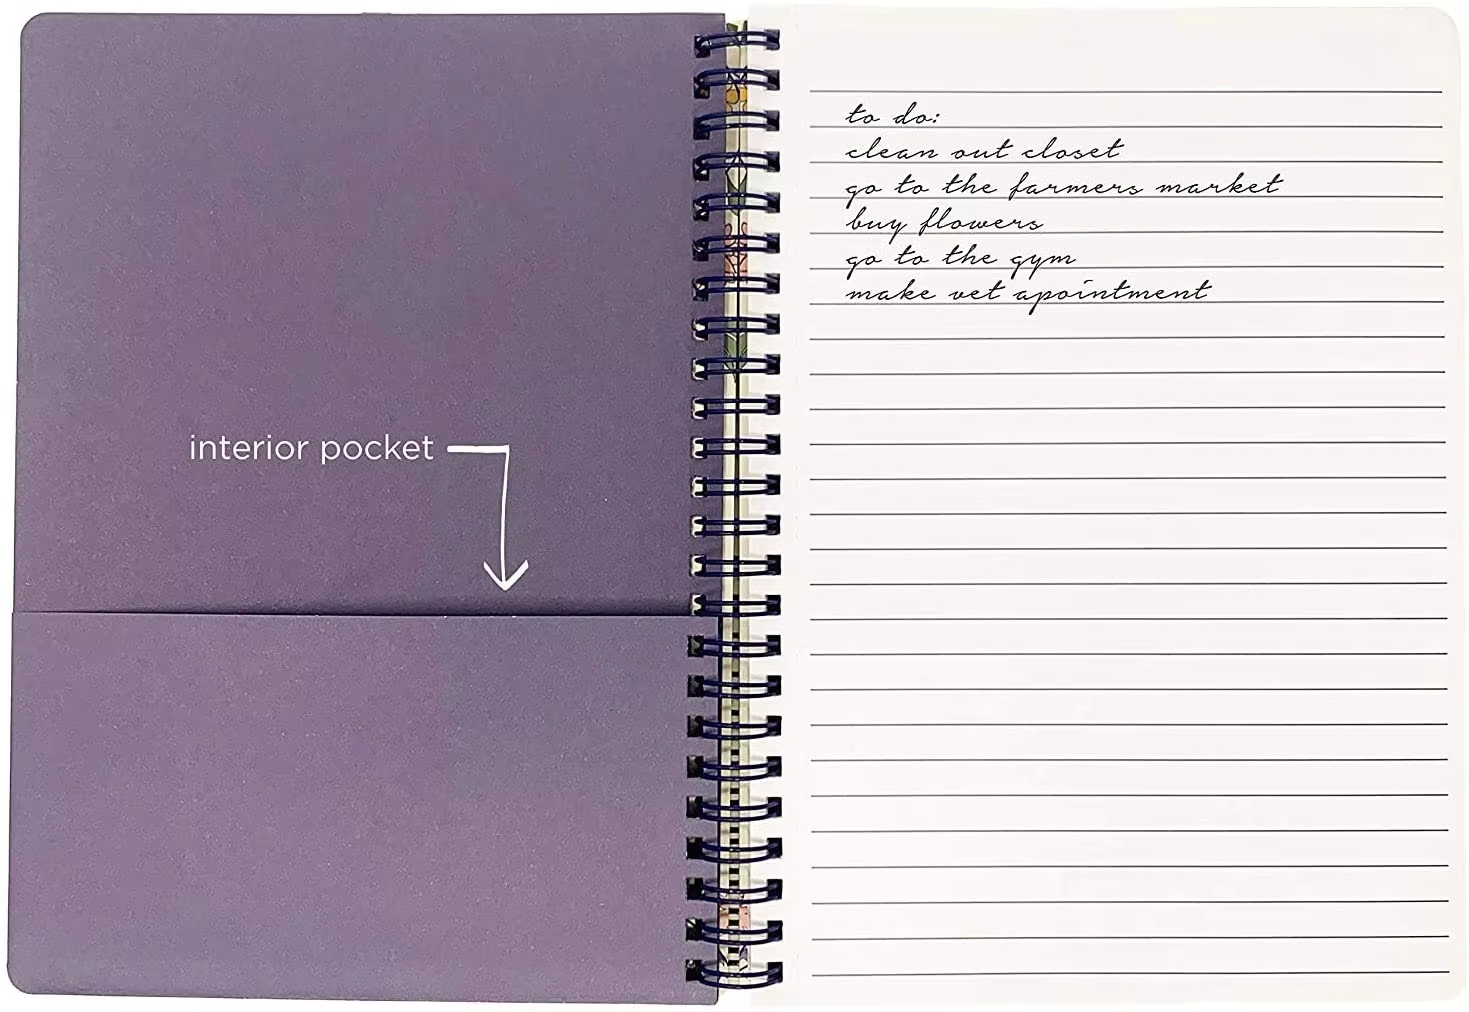 to do:
clean out closet
go to the farmers market
buy flowers
go to the gym
make vet apointment
interior pocket